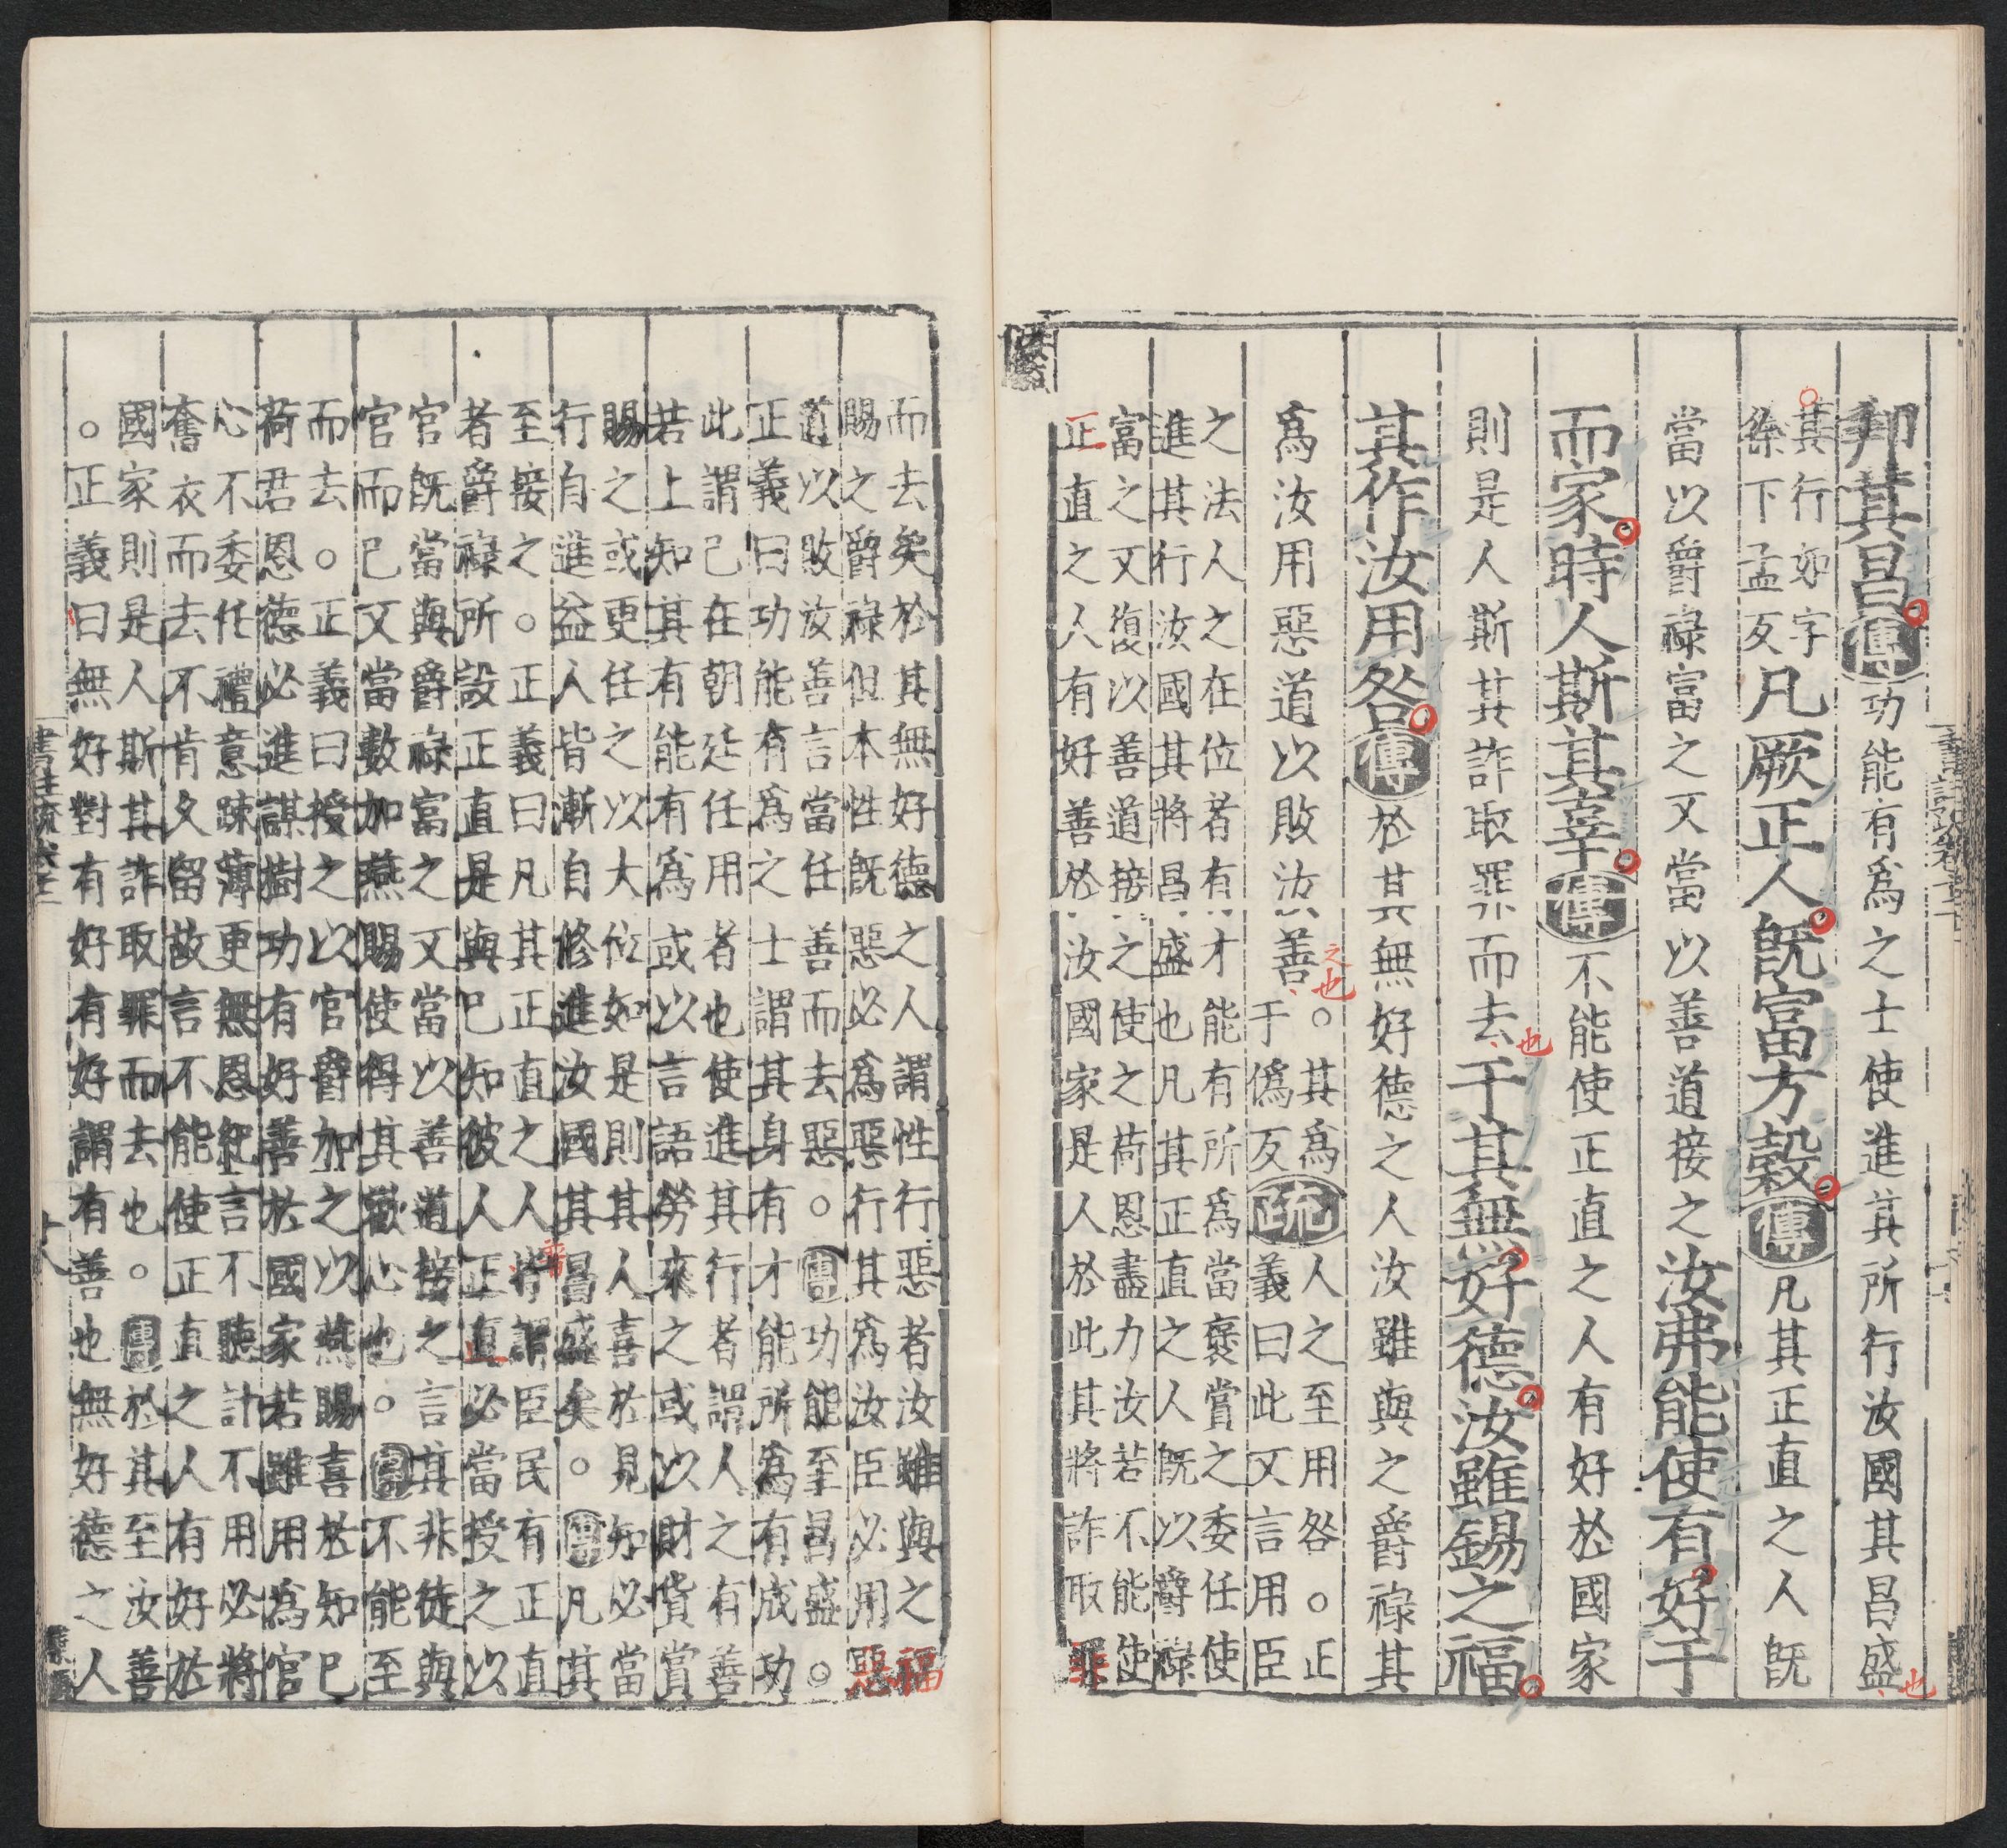 邦其昌傳功能有爲之士使進其所行汝國其昌盛也
其行如字
徐下孟反凡厥正人既富方穀傳凡其正直之人既
當以爵祿富之又當以善道接之汝弗能使有好于
而家時人斯其辜傳不能使正直之人有好於國家
則是人斯其詐取罪而去也于其無好德汝雖錫之福
其作汝用咎傳於其無好德之人汝雖與之爵祿其
爲汝用惡道以敗汝善之也。其爲
于僞反疏人之至用咎。正
義曰此又言用臣
之法人之在位者有才能有所爲當褒賞之委任使
進其行汝國其將昌盛也凡其正直之人既以爵祿
富之又復以善道接之使之荷恩盡力汝若不能使
正直之人有好善於汝國家是人於此其將詐取罪
而去矣於其無好德之人謂性行惡者汝雖與之福
賜之爵祿但本性既惡必爲惡行其爲汝臣必用惡
道以敗汝善言當任善而去惡。傳功能至昌盛。
正義曰功能有爲之士謂其身有才能所爲有成功
此謂已在朝廷任用者也使進其行者謂人之有善
若上知其有能有爲或以言語勞來之或以財貨賞
賜之或更任之以大位如是則其人喜於見知必當
行自進益人皆漸自修進汝國其昌盛矣。傳凡其
至接之。正義曰凡其正直之人皆謂臣民有正直
者爵祿所設正直是與已知彼人正直必當授之以
官既當與爵祿富之又當以善道接之言其非徒與
官而已又當數加燕賜使得其歡心也。傳不能至
而去。正義曰授之以官爵加之以燕賜喜於知已
荷君恩德必進謀樹功有好善於國家若雖用爲官
心不委任禮意疎薄更無恩紀言不聽計不用必將
奮衣而去不肯久留故言不能使正直之人有好於
國家則是人斯其詐取罪而去也。傳於其至汝善
。正義曰無好對有好有好謂有善也無好德之人